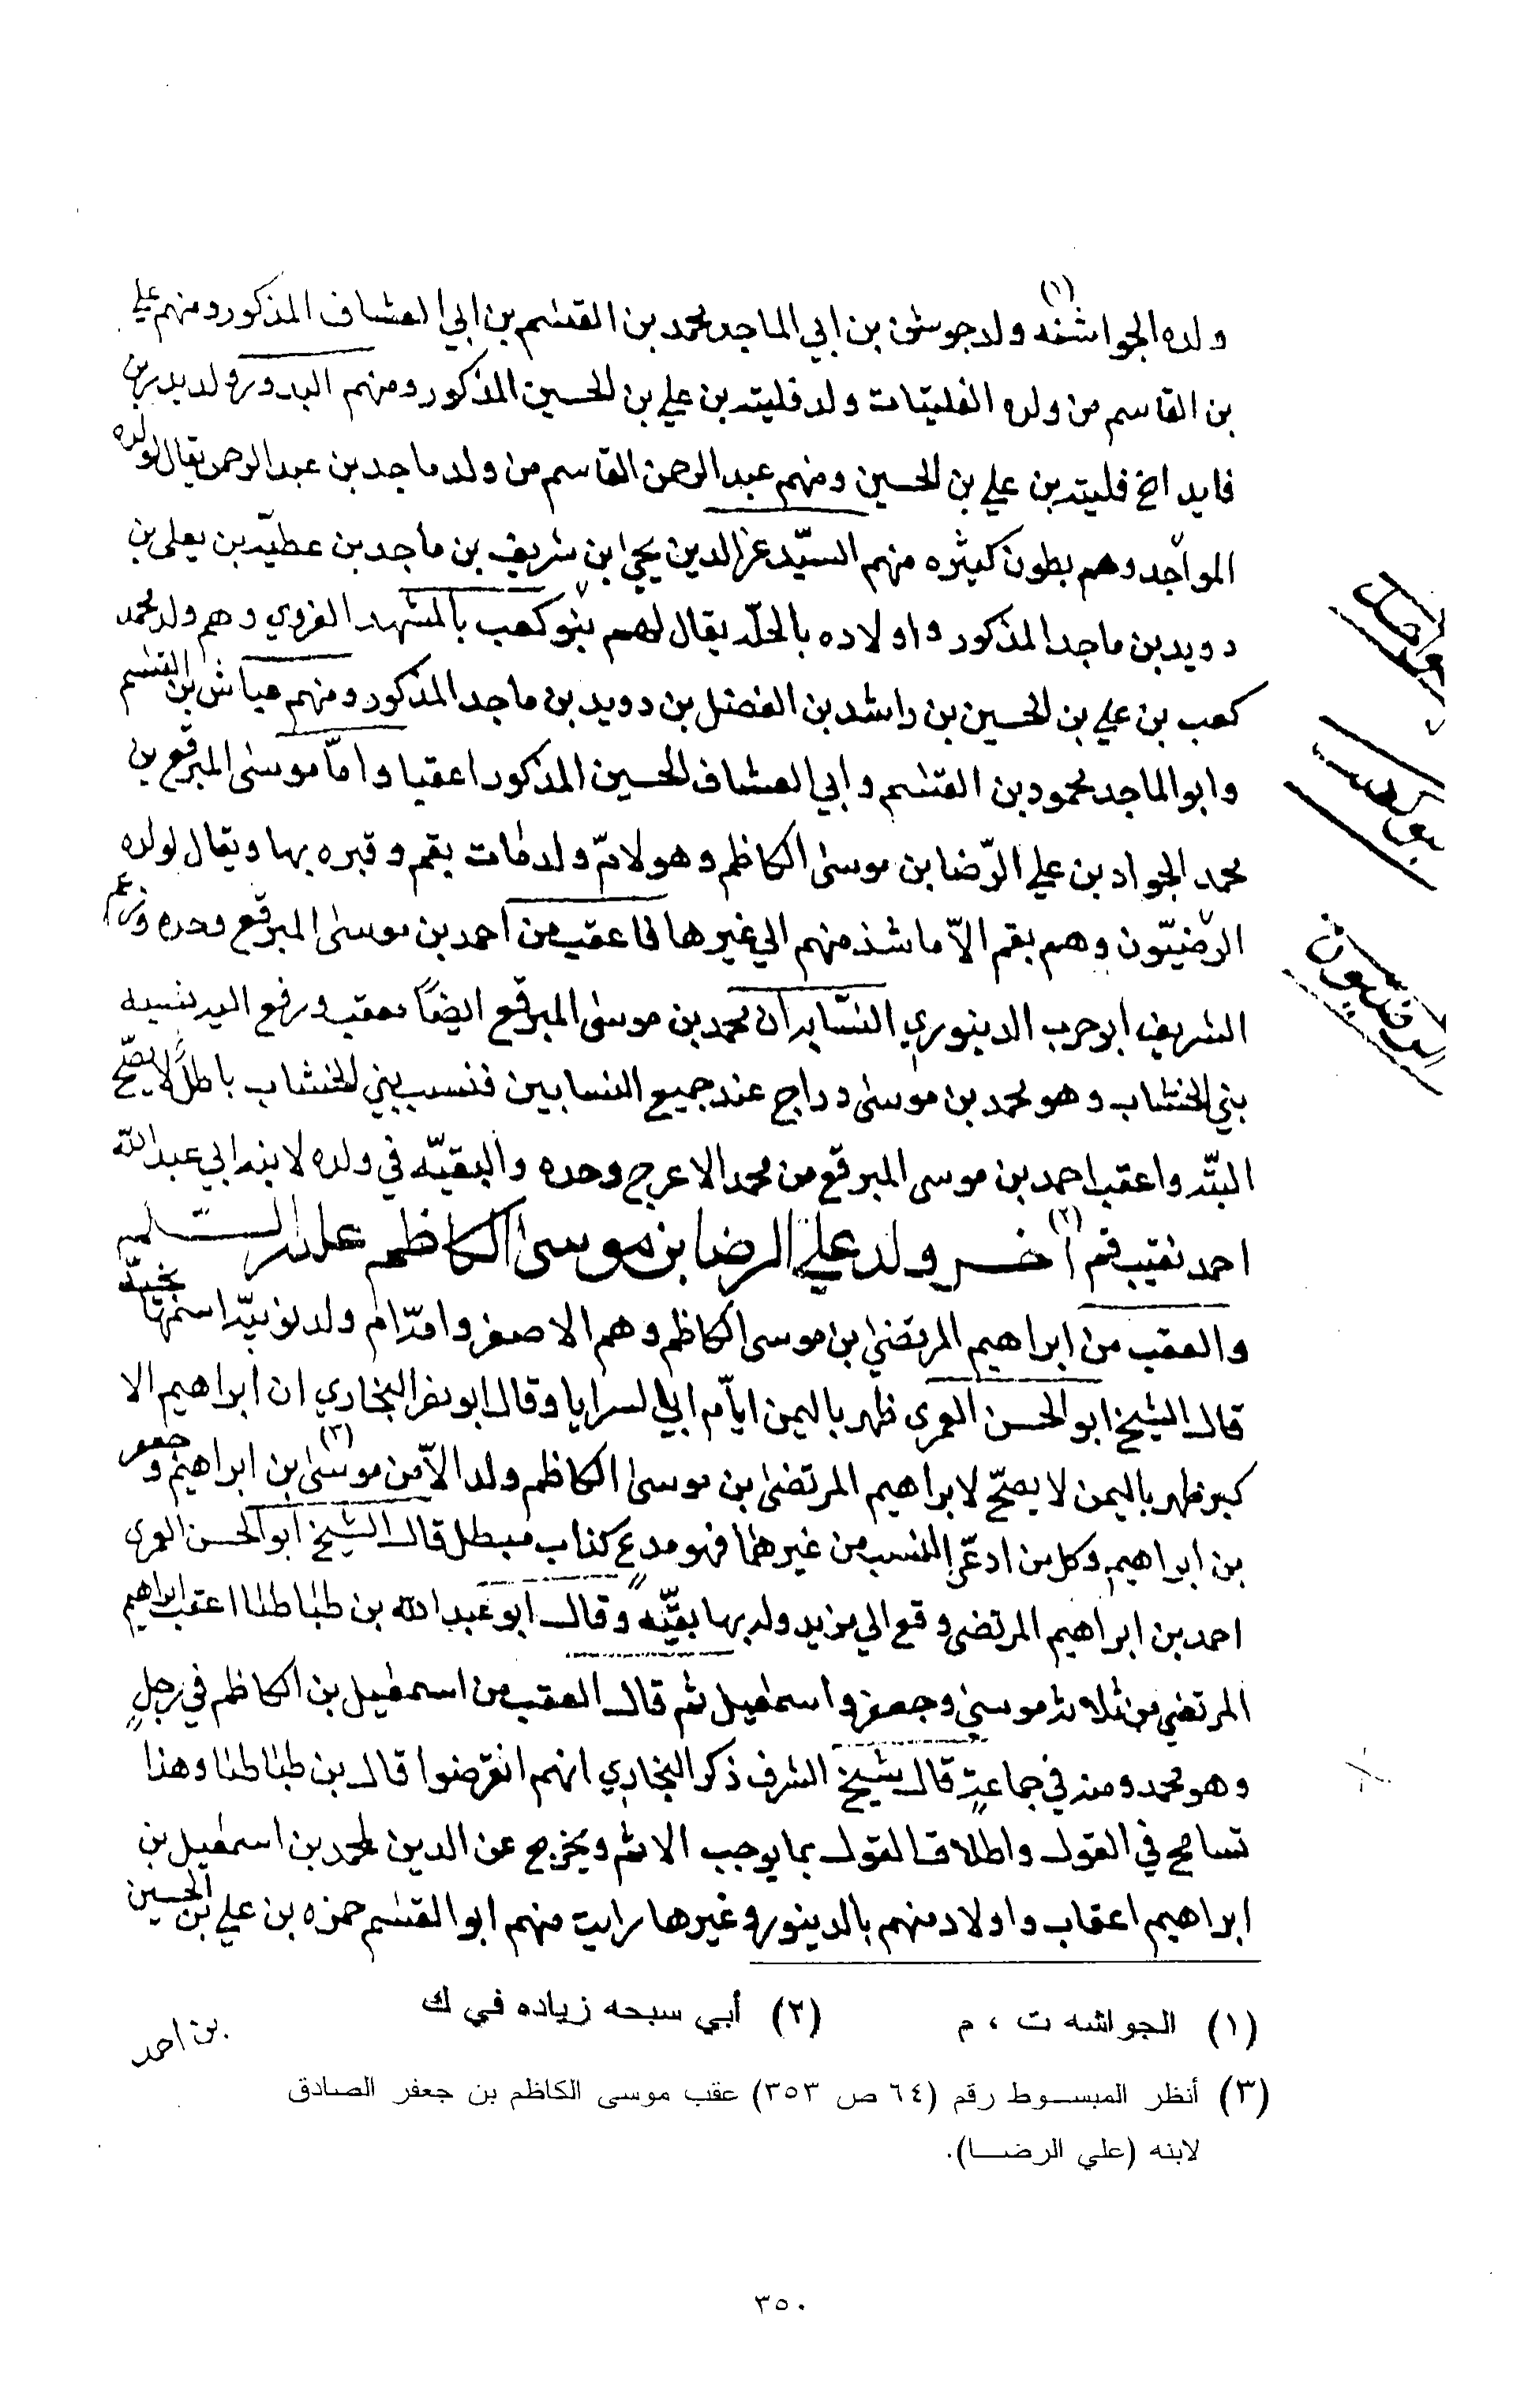 ولده الجواشنه (١) ولد جوشن بن ابي الماجد محمد بن القسم بن ابي العشاف المذكور ومنهم علي
بن القاسم من ولده الفليتات ولد فليته بن علي بن الحسين المذكور ومنهم البدور ولد بدر بن
فايد اخ فليته بن علي بن الحسين ومنهم عبد الرحمن القاسم من ولد ماجد بن عبد الرحمن يقال لولده
المواجد وهم بطون كثيره منهم السيّد عز الدين يحيى ابن شريف بن ماجد بن عطيّه بن يعلى بن
دويد بن ماجد المذكور واولاده بالحلّه يقال لهم بنو كعب بالمشهد الغروي وهم ولد محمد
كعب بن علي بن الحسين بن راشد بن الفضل بن دويد بن ماجد المذكور ومنهم عياش بن القسم
وابو الماجد محمود بن القسم وابي العشاف الحسين المذكور اعقبا وامّا موسى المبرقع بن
محمد الجواد بن علي الرّضا بن موسى الكاظم وهو لامّ ولد مات بقم وقبره بها ويقال لولده
الرضيّون وهم بقم الاّ ما شذ منهم الي غيرها فاعقب من احمد بن موسى المبرقع وحده وزعم
الشريف ابو حرب الدينوري النسّابه ان محمد بن موسى المبرقع ايضًا معقب ورفع اليه نسبه
بني الخشاب وهو محمد بن موسى دراج عند جميع النسابين فنسب بني الخشاب باطل لا يصحّ
البتّه واعقب احمد بن موسى المبرقع من محمد الاعرج وحده والبقيّه في ولده لابنه ابي عبد الله
احمد نقيب قم (٢) اخر ولد علي الرضا بن موسى الكاظم عليه السلم
والعقب من ابراهيم المرتضى بن موسى الكاظم وهم الاصغر وامّه ام ولد نوبيّه اسمها نجيّه
قال الشيخ ابو الحسن العمري ظهر باليمن ايام ابي السرايا وقال ابو نصر البخاري ان ابراهيم الا
كبر ظهر باليمن لا يصحّ لابراهيم المرتضى بن موسى الكاظم ولد الاّ من موسى (٣) بن ابراهيم وجعفر
بن ابراهيم وكل من ادعى النسب من غيرهما فهو مدع كذاب مبطل قال الشيخ ابو الحسن العمري
احمد بن ابراهيم المرتضى وقع الي مزيد ولد بها بقيّه وقال ابو عبد الله بن طباطبا اعقب ابراهيم
المرتضى من ثلاثه موسى وجعفر واسمعيل ثم قال العقب من اسمعيل بن الكاظم في رجل
وهو محمد ومنه في جماعة قال شيخ الشرف ذكر البخاري انهم انقرضوا قال بن طباطبا وهذا
تسامح في القول واطلاق القول بما يوجب الاثم ويخرج عن الدين لمحمد بن اسمعيل بن
ابراهيم اعقاب واولاد منهم بالدينور وغيرها رايت منهم ابو القسم حمزه بن علي بن الحسين
بن احمد
بنو كعب
الرضيون
(١) الجواشه ت ، م (٢) أبي سبحه زياده في ك
(٣) أنظر المبسوط رقم (٦٤ ص ٣٥٣) عقب موسى الكاظم بن جعفر الصادق
لابنه (علي الرضا).
٣٥٠